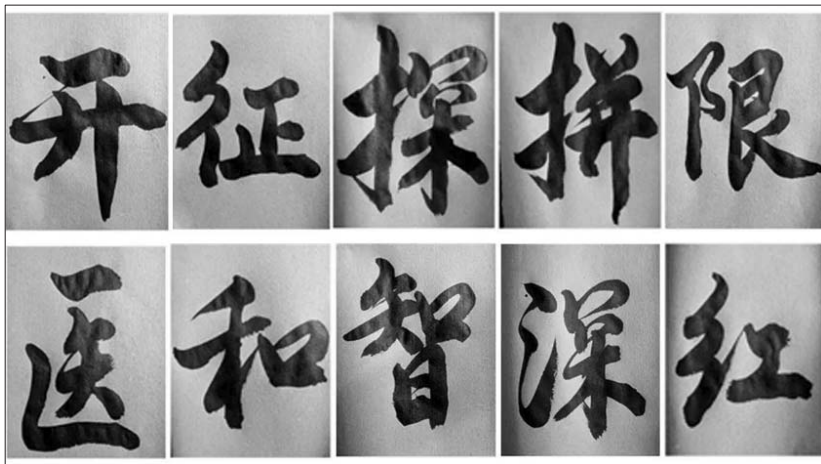 开征探拼限
医和智深红